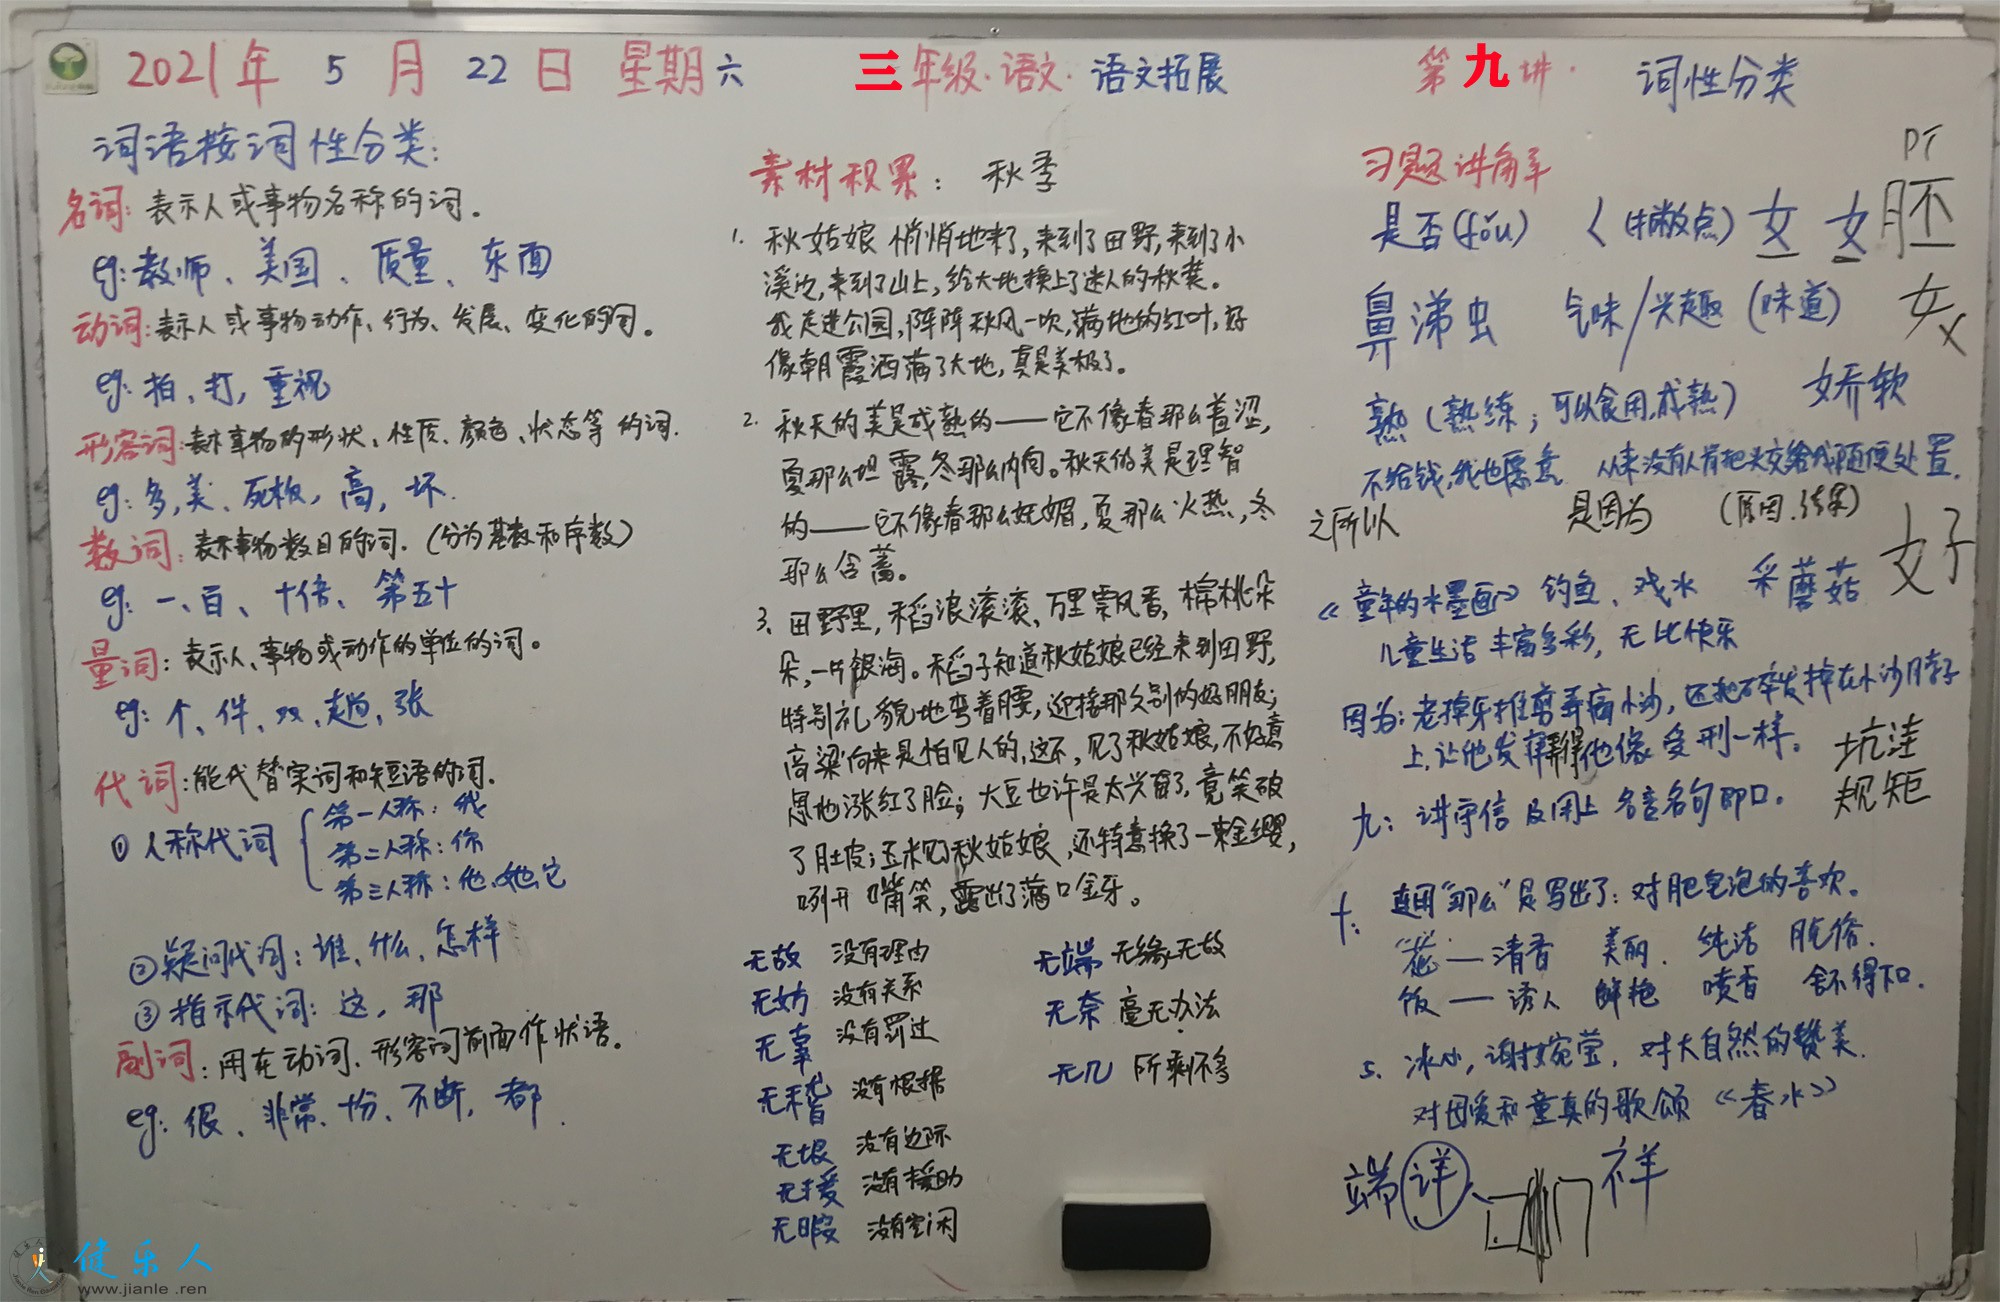 2021年 5 月 22 日 星期六 三年级·语文·语文拓展 第九讲· 词性分类
词语按词性分类:
名词: 表示人或事物名称的词。
eg: 教师、美国、质量、东面
动词: 表示人或事物动作、行为、发展、变化的词。
eg: 拍、打, 重视
形容词: 表示事物的形状、性质、颜色、状态等的词.
eg: 多, 美、死板, 高, 坏.
数词: 表示事物数目的词. (分为基数和序数)
eg: 一、百、十倍、第五十
量词: 表示人、事物或动作的单位的词。
eg: 个、件、双、趟、张
代词: 能代替实词和短语的词.
① 人称代词
第一人称: 我
第二人称: 你
第三人称: 他、她、它
②疑问代词: 谁、什么、怎样
③指示代词: 这, 那
副词: 用在动词、形容词前面作状语。
eg: 很、非常、十分、不断, 都.
素材积累: 秋季
1. 秋姑娘悄悄地来了, 来到了田野, 来到了小
溪边, 来到了山上, 给大地换上了迷人的秋装。
我走进公园, 阵阵秋风一吹, 满地的红叶, 好
像朝霞洒满了大地, 真是美极了。
2. 秋天的美是成熟的——它不像春那么羞涩,
夏那么坦露, 冬那么内向。秋天的美是理智
的——它不像春那么妩媚, 夏那么火热, 冬
那么含蓄。
3. 田野里, 稻浪滚滚, 万里飘香, 棉桃朵
朵, 一片银海。稻子知道秋姑娘已经来到田野,
特别礼貌地弯着腰, 迎接那久别的好朋友;
高粱向来是怕见人的, 这不, 见了秋姑娘, 不好意
思地涨红了脸; 大豆也许是太兴奋了, 竟笑破
了肚皮; 玉米见了秋姑娘, 还特意换了一束金缨,
咧开嘴笑, 露出了满口金牙。
无故 没有理由
无妨 没有关系
无辜 没有罪过
无稽 没有根据
无垠 没有边际
无援 没有援助
无暇 没有空闲
无端 无缘无故
无奈 毫无办法
无几 所剩不多
习题讲解
是否(fǒu) く (撇点) 女 女 胚
鼻涕虫 气味/兴趣 (味道) 女
熟 (熟练; 可以食用, 成熟) 娇软
不给钱, 我也愿意 从来没有人肯把头交给我随便处置.
之所以 是因为 (原因, 结果)
《童年的水墨画》 钓鱼、戏水 采蘑菇 好
儿童生活丰富多彩, 无比快乐
因为: 老掉牙推剪弄痛小沙, 还把碎发掉在小沙脖子
上, 让他发痒, 使得他像受刑一样。
坑洼
规矩
九: 讲守信及用上名言名句即可。
十: 连用“那么”是写出了: 对肥皂泡的喜欢。
“花”— 清香 美丽. 纯洁 脱俗.
饭 — 诱人 鲜艳 喷香 舍不得下口.
5. 冰心, 谢婉莹, 对大自然的赞美.
对母爱和童真的歌颂 《春水》
端详 祥
健乐人
www.jianle.ren